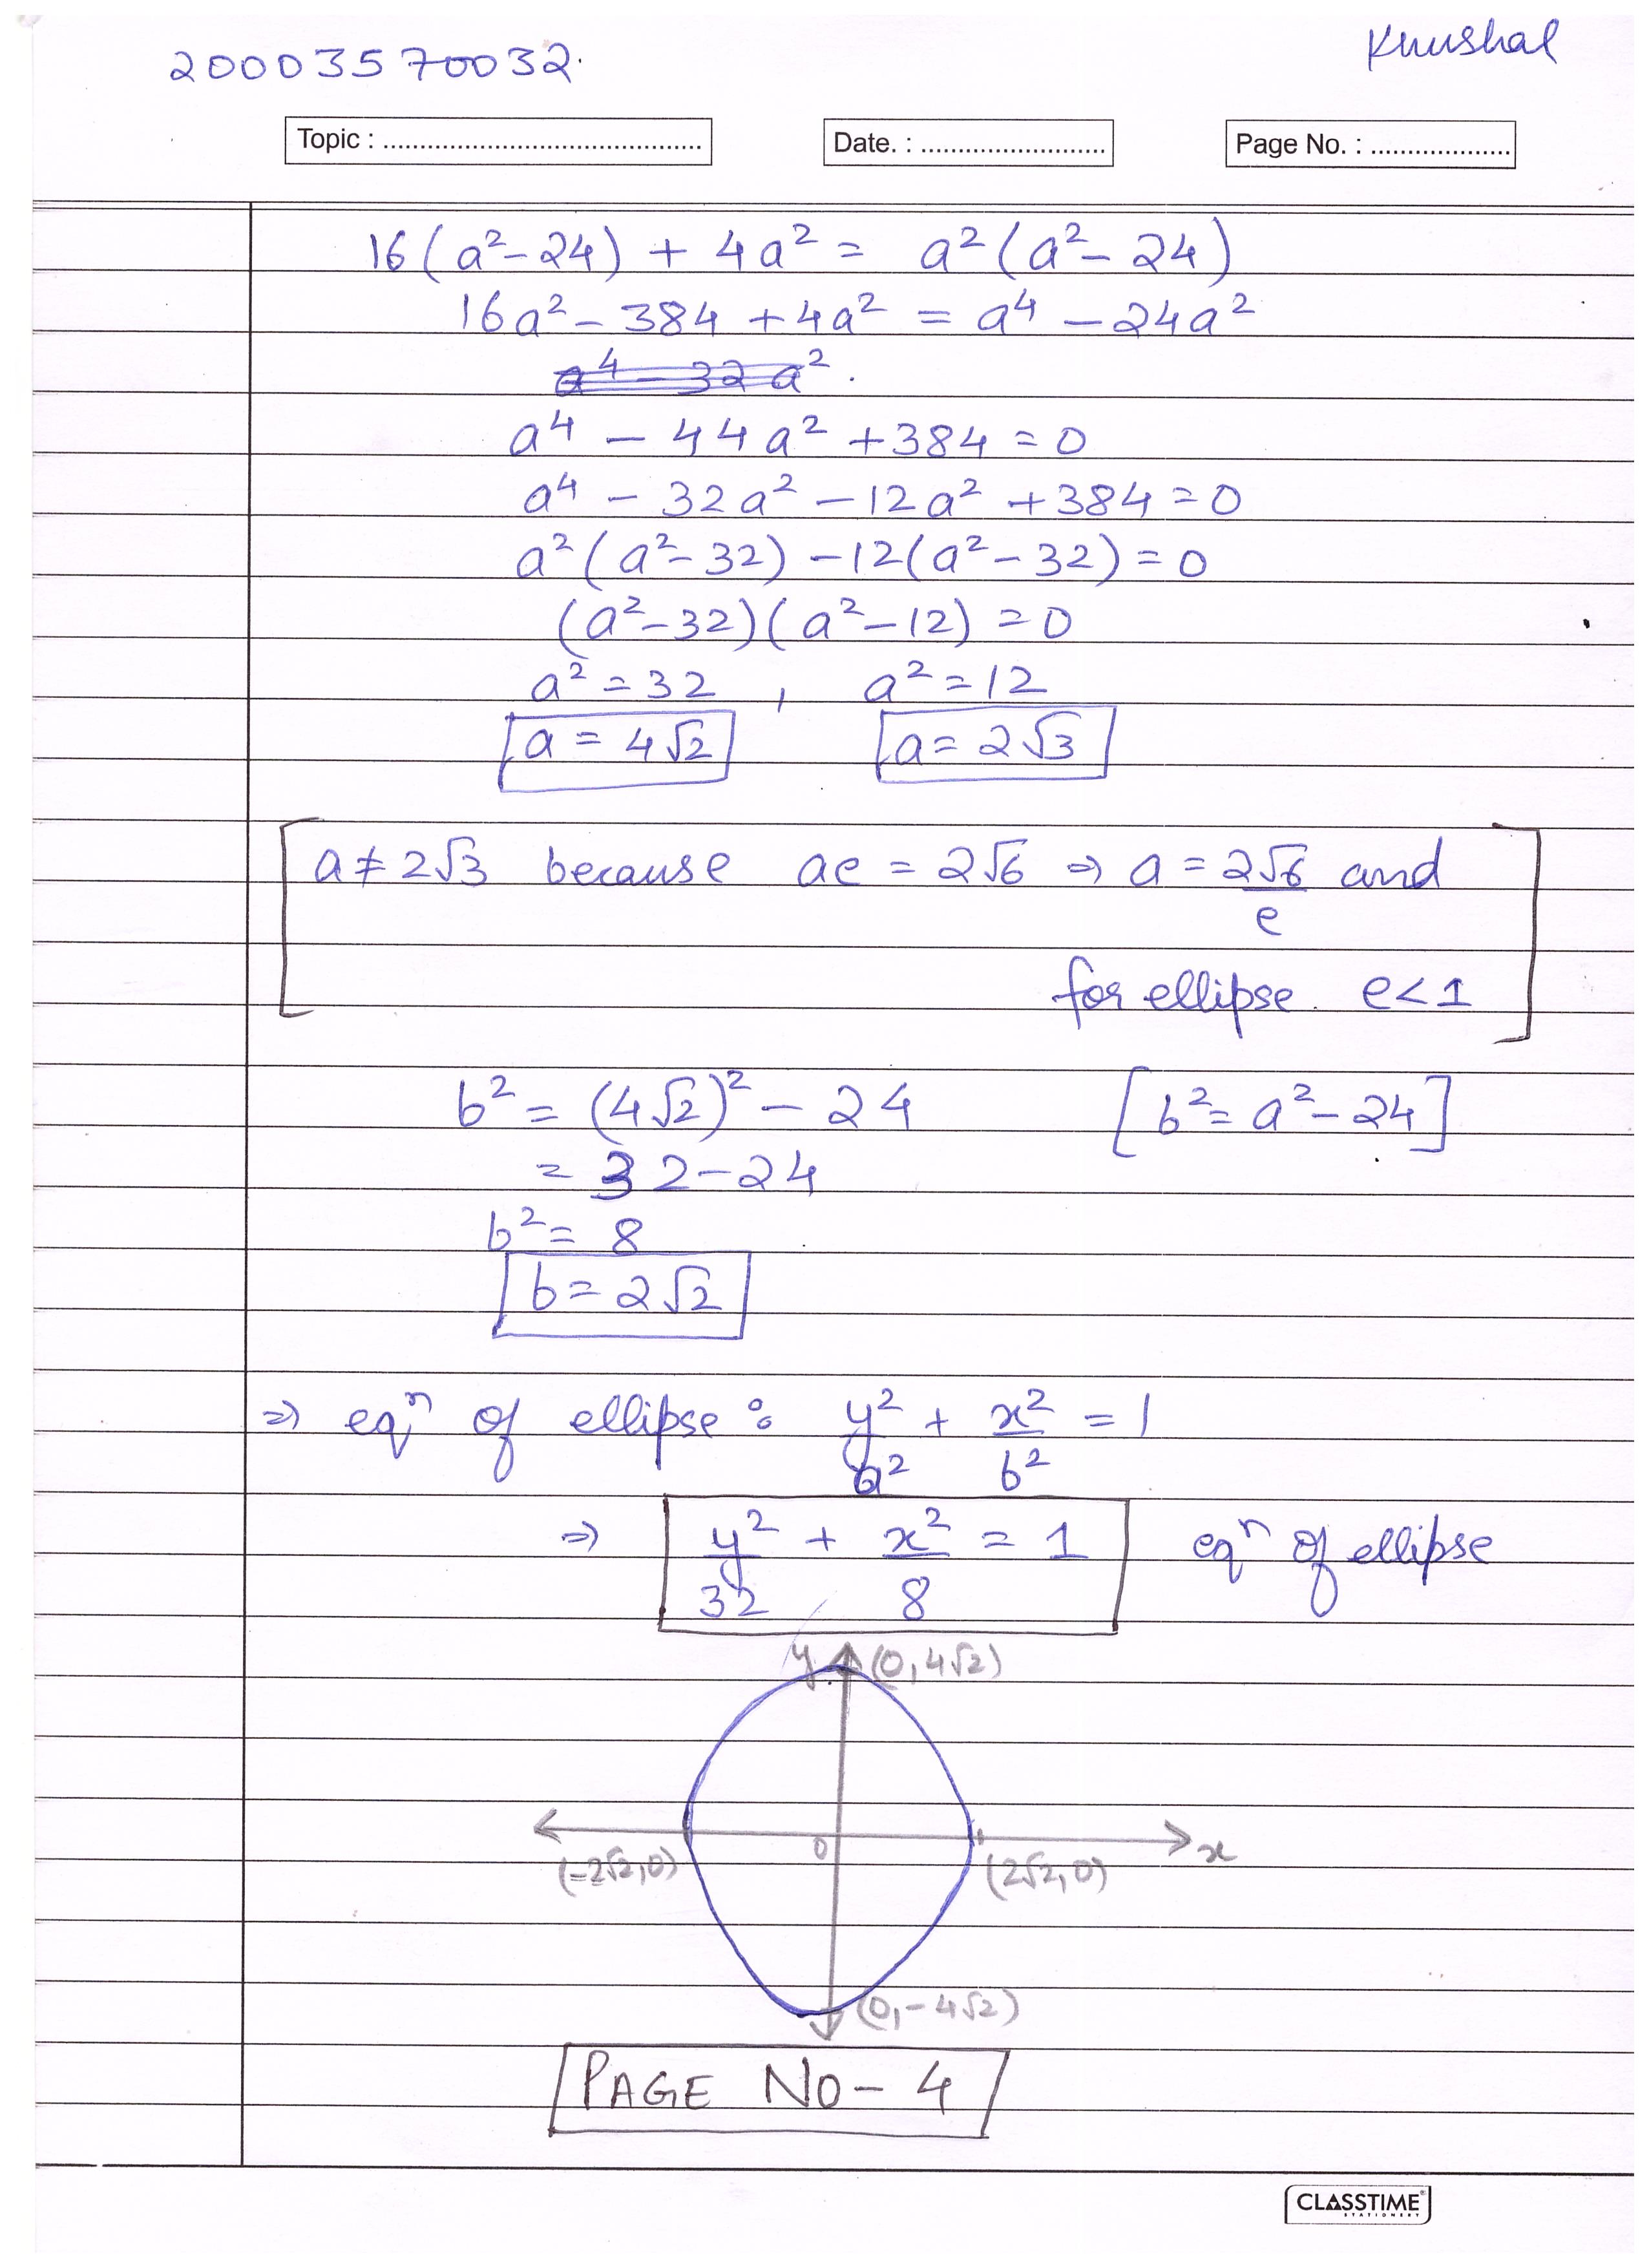 20003570032.
Khushal
Topic : ............................................
Date. : .........................
Page No. : ...................
16(a²-24) + 4a² = a²(a²-24)
16a² - 384 + 4a² = a⁴ - 24a²
a⁴ - 32a².
a⁴ - 44a² + 384 = 0
a⁴ - 32a² - 12a² + 384 = 0
a²(a²-32) - 12(a²-32) = 0
(a²-32)(a²-12) = 0
a² = 32 , a² = 12
a = 4√2 a = 2√3
a ≠ 2√3 because ae = 2√6 ⇒ a = 2√6/e and
for ellipse. e < 1
b² = (4√2)² - 24 [b² = a² - 24]
= 32 - 24
b² = 8
b = 2√2
⇒ eqⁿ of ellipse : y²/a² + x²/b² = 1
⇒ y²/32 + x²/8 = 1 eqⁿ of ellipse
y (0, 4√2)
0 x
(-2√2, 0) (2√2, 0)
(0, -4√2)
PAGE NO - 4
CLASSTIME
STATIONERY